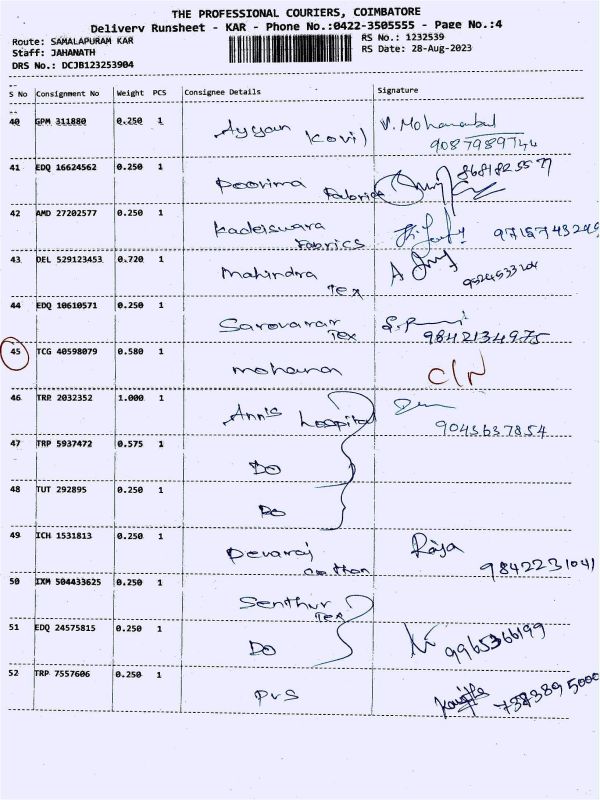 THE PROFESSIONAL COURIERS, COIMBATORE
Delivery Runsheet - KAR - Phone No.:0422-3505555 - Page No.:4
Route: SAMALAPURAM KAR
RS No.: 1232539
Staff: JAHANATH
RS Date: 28-Aug-2023
DRS No.: DCJB123253904
S No Consignment No Weight PCS Consignee Details Signature
40 GPM 311880 0.250 1 Ayyan Kovil V. Mohanambal
9087989744
41 EDQ 16624562 0.250 1 Poorima Fabrics
42 AMD 27202577 0.250 1 Kadeiswara Fabrics
43 DEL 529123453 0.720 1 Mahindra Tex
44 EDQ 10610571 0.250 1 Sarovarar Tex
9842134975
45 TCG 40598079 0.580 1 mohanan C/N
46 TRP 2032352 1.000 1 Annis hospital
9043637854
47 TRP 5937472 0.575 1 DO
48 TUT 292895 0.250 1 DO
49 ICH 1531813 0.250 1 Devaraj cotton Raja
9842231041
50 IXM 504433625 0.250 1 Senthur Tex
51 EDQ 24575815 0.250 1 DO 9965366199
52 TRP 7557606 0.250 1 PVS